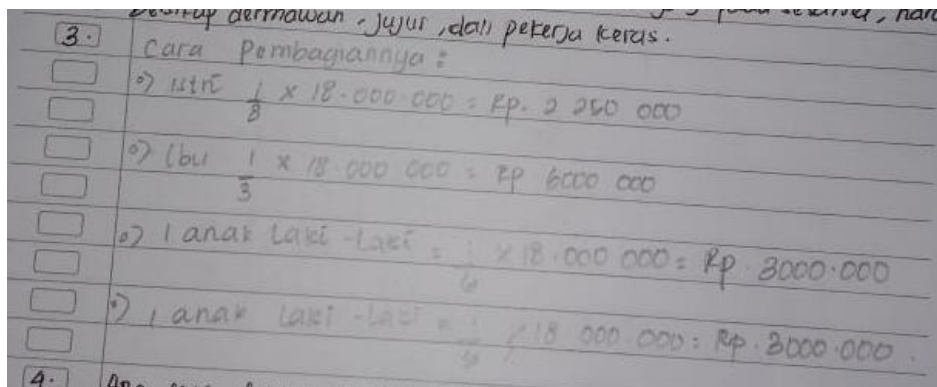 bersikap dermawan, jujur, dan pekerja keras.
3. Cara Pembagiannya :
o) istri 1/8 x 18.000.000 = Rp. 2 250 000
o) Ibu 1/3 x 18.000 000 = Rp 6000 000
o) 1 anak Laki-Laki = 1/6 x 18.000 000 = Rp. 3000.000
o) 1 anak Laki-Laki = 1/6 x 18 000 000 = Rp. 3000.000.
4.